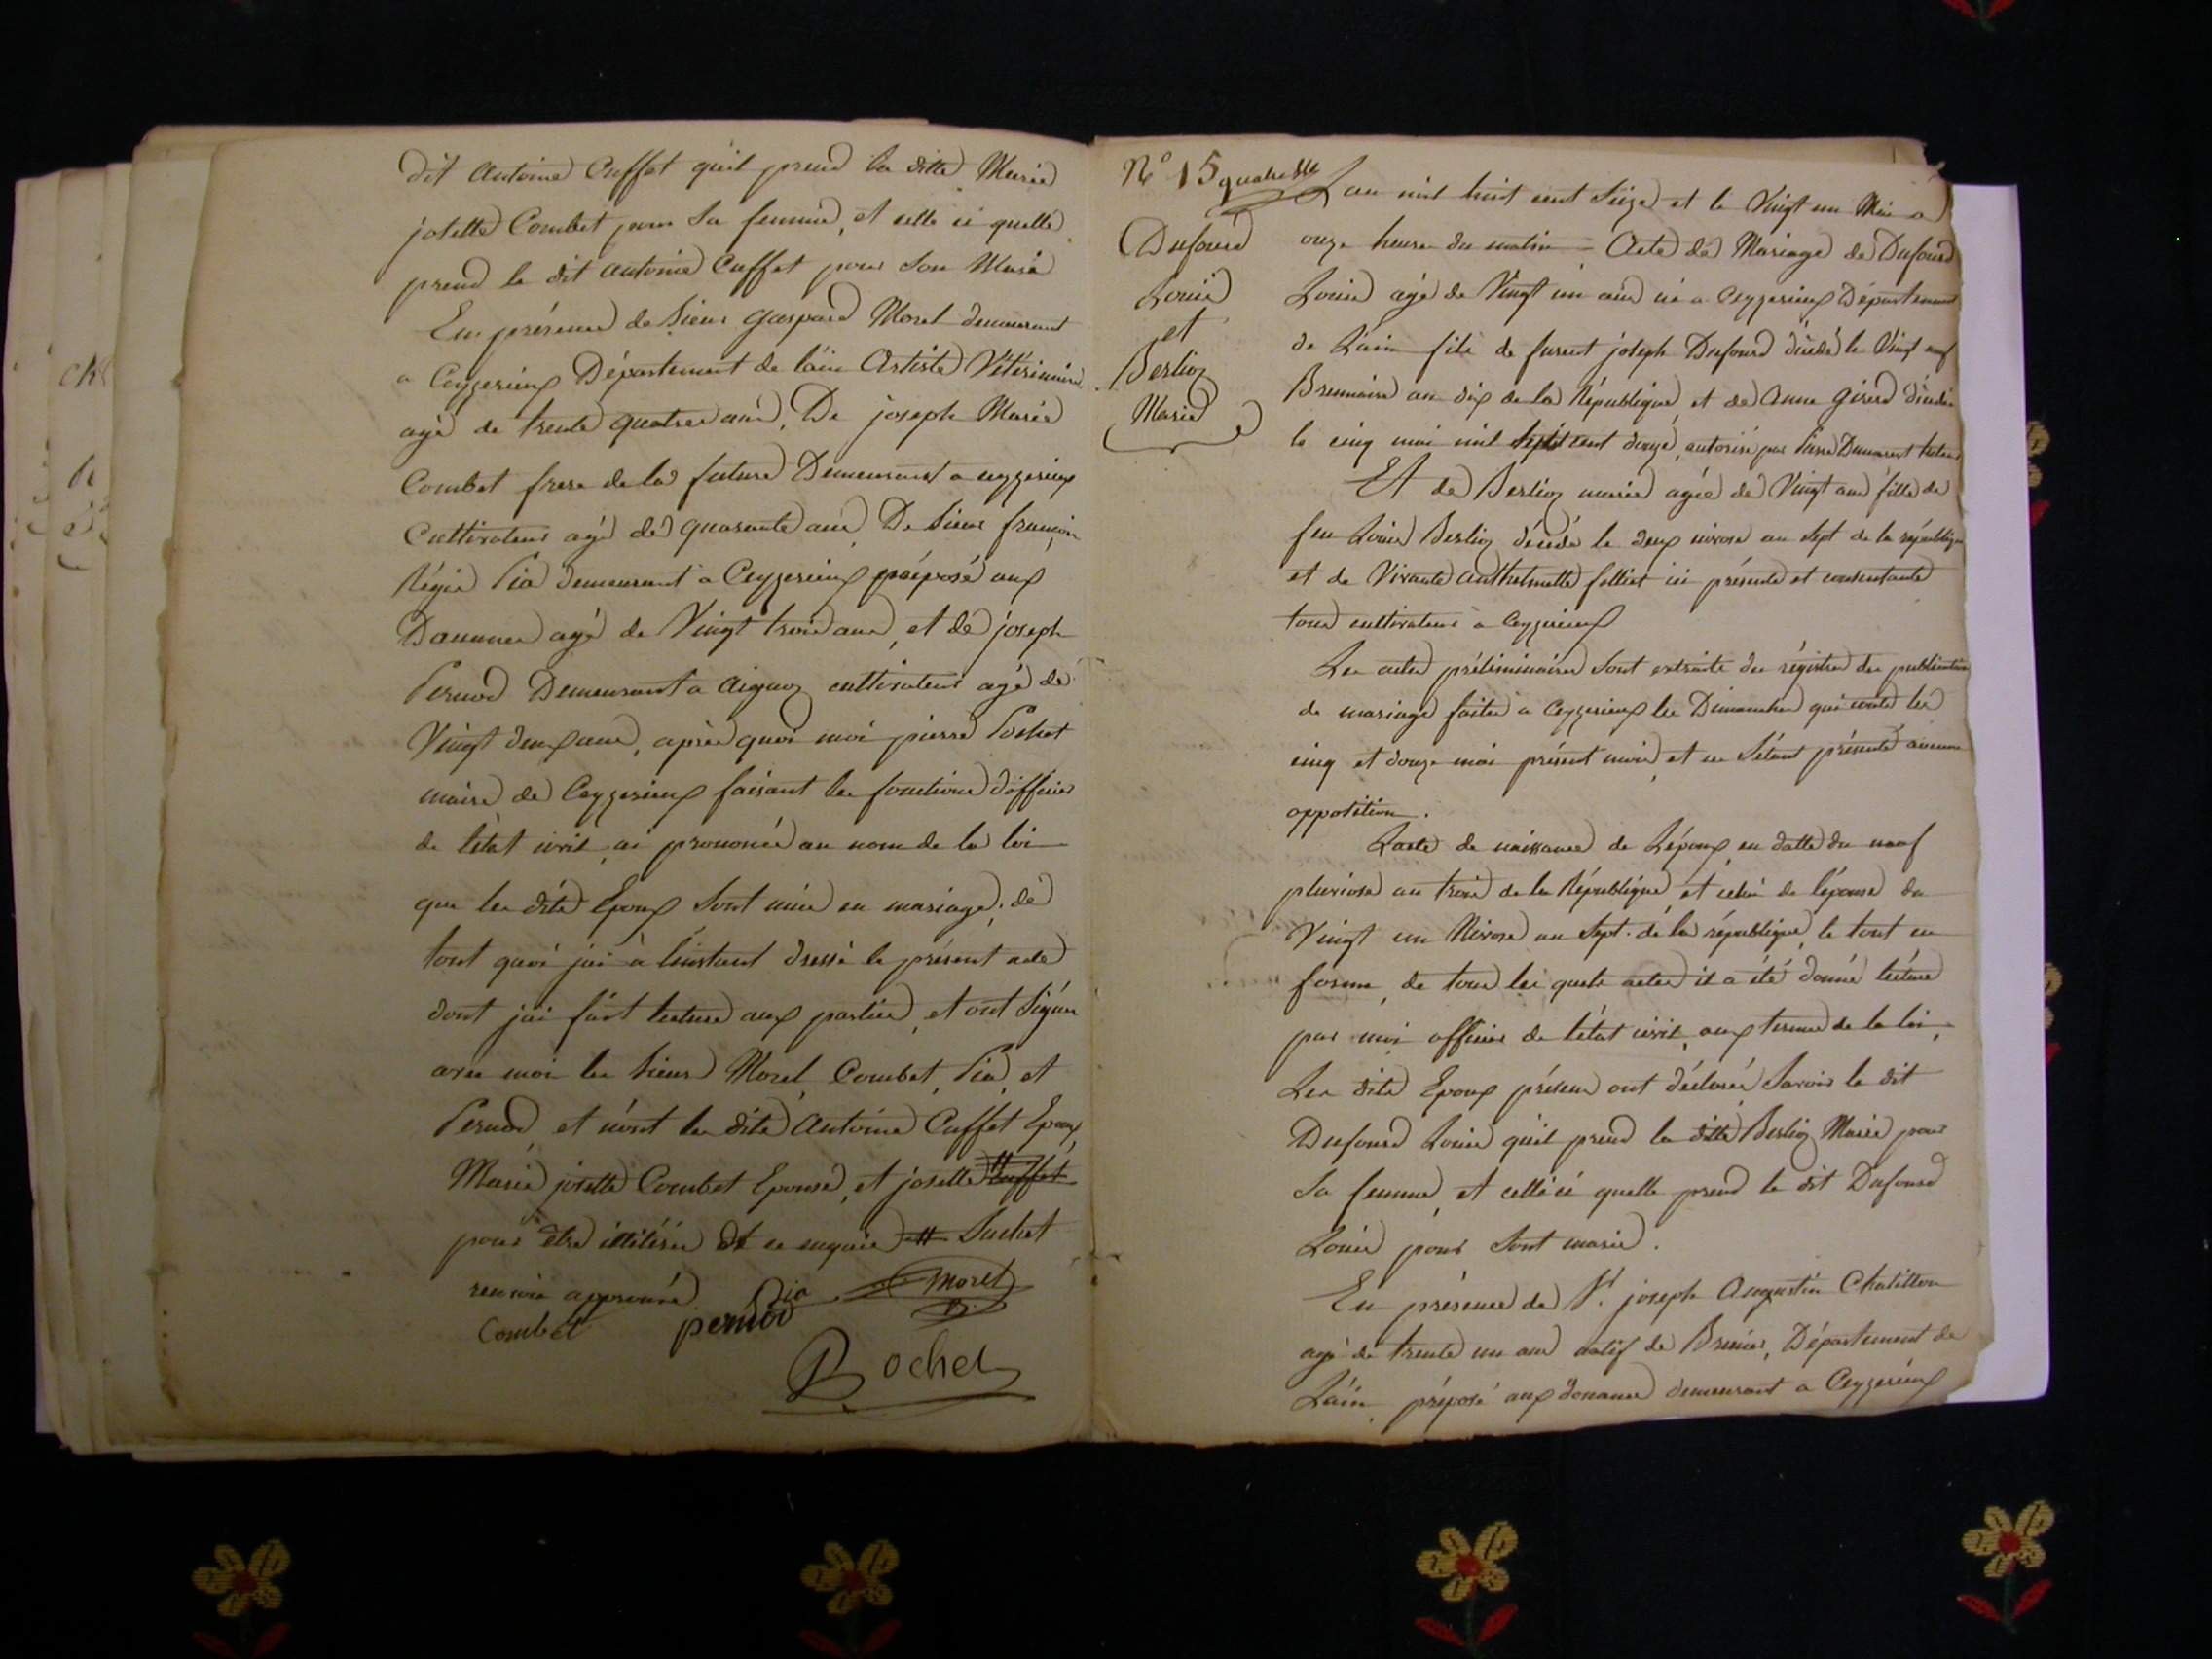 dit Antoine Cuffet quil prend la ditte Marie
josette Combet pour Sa femme, et celle ci quelle
prend le dit antoine Cuffet pour Son Mari
En présence de Sieur Gaspard Morel demeurant
a Ceyzerieux Département de lain Artiste Vétérinaire
agé de trente quatre ans, De joseph Marie
Combet frere de la future Demeurant a ceyzerieux
Cultivateur agé de quarante ans, De Sieur françois
Régis Pia demeurant a Ceyzerieux préposé aux
Douannes agé de Vingt trois ans, et de joseph
Pernod Demeurant a Aignoz cultivateur agé de
Vingt deux ans, après quoi moi pierre Pochet
maire de Ceyzerieux faisant les fonctions dofficier
de létat civil, ai prononcé au nom de la loi
que les dits Epoux Sont unis en mariage; de
tout quoi jai à linstant dressé le présent acte
dont jai fait lecture aux parties, et ont Signer
avec moi les Sieurs Morel, Combet, Pia, et
Pernod, et nont les dits Antoine Cuffet Epoux,
Marie josette Combet Epouse, et josette cuffet
pour être illitérés de ce enquis # Suchet
renvoi approuvé Pia Morel
Combet pernod
Pochet
ch
N° 15 quatre
Dufourd
Louis
et
Berlioz
Marie
Lan mil huit cent Seize et le Vingt un Mai a
onze heures du matin = Acte de Mariage de Dufourd
Louis agé de Vingt un ans né a Ceyzerieux Département
de Lain fils de furent joseph Dufourd décédé le Vingt neuf
Brumaire an dix de la République, et de Anne Girerd décédée
le cinq mai mil huit cent douze, autorisé par Pierre Dumarest tuteur
Et de Berlioz marie agée de Vingt ans fille de
feu Louis Berlioz décédé le deux nivose an Sept de la république
et de Vivante Anthelmette folliet ici présente et consentante
tous cultivateurs a Ceyzerieux
Les actes préliminaires Sont extraits du régistre des publications
de mariage faites a Ceyzerieux les Dimanches qui sont les
cinq et douze mai présent mois, et ne Sétant présenté aucune
opposition.
Lacte de naissance de Lépoux en datte du neuf
pluviose an trois de la République, et celui de lépouse du
Vingt un Nivose an Sept de la république, le tout en
forme, de tous les quels actes il a été donné lecture
par moi officier de létat civil, aux termes de la loi,
Les dits Epoux présens ont déclarés Savoir le dit
Dufourd Louis quil prend la ditte Berlioz Marie pour
Sa femme, et celle ci quelle prend le dit Dufourd
Louis pour Sont mari.
En présence de Sr. joseph Augustin Chatillon
agé de trente un ans natif de Brenier, Département de
Lain, préposé aux donanes demeurant a Ceyzerieux